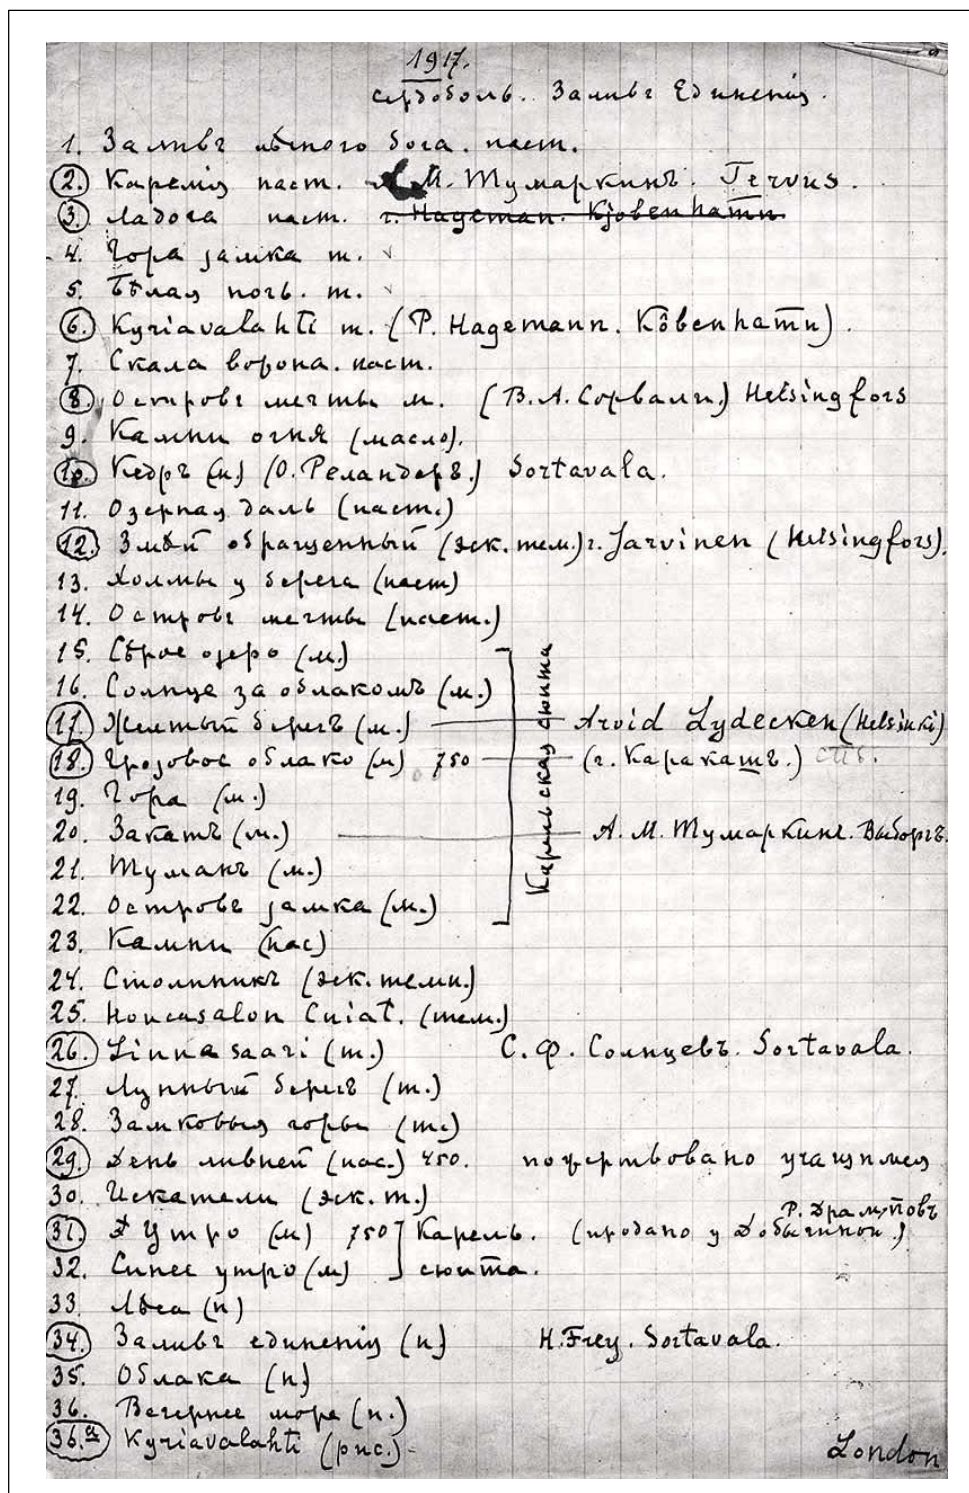 1917.
Сердоболь. Заливъ Единенія.
1. Заливъ лѣсного бога. паст.
2. Карелія паст. М. Тумаркинъ. Tervus.
3. Ладога паст. г. Hageman. Kjobenhamn
4. Гора замка т.
5. Бѣлая ночь. т.
6. Kyriavalahti т. (P. Hagemann. Kôbenhamn).
7. Скала ворона. паст.
8. Островъ мечты м. (В.А. Сорвали.) Helsingfors
9. Камни огня (масло).
10. Кедръ (п.) (О. Реландеръ.) Sortavala.
11. Озерная даль (паст.)
12. Змѣй обращенный (эск. тем.) г. Jarvinen (Helsingfors).
13. Холмы у берега (паст)
14. Островъ мечты (паст.)
15. Сѣрое озеро (м.)
16. Солнце за облакомъ (м.)
17. Желтый берегъ (м.) Arvid Lydecken (Helsinki)
18. Грозовое облако (м) 750 (г. Каракашъ.) СПБ.
19. Гора (м.)
20. Закатъ (м.) А. М. Тумаркинъ. Выборгъ.
21. Туманъ (м.)
22. Островъ замка (м.)
Карельская сюита
23. Камни (пас)
24. Столпникъ (эск. темп.)
25. (тем.)
26. Linnasaari (т.) С. Ф. Солнцевъ. Sortavala.
27. Лунный берегъ (т.)
28. Замковыя горы (т.)
29. День ливней (пас.) 450. пожертвовано учащимся
30. Искатели (эск. т.)
31. Утро (м) 750 Карель. (продано у Добычиной.)
32. Синее утро (м) сюита.
33. Лѣса (п)
34. Заливъ единенія (п) H. Frey. Sortavala.
35. Облака (п)
36. Вечернее море (п.)
36.а Kyriavalahti (рис.) London